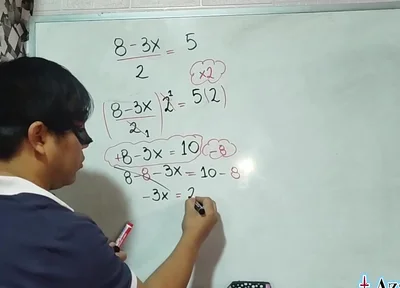 (8-3x)/2 = 5
×2
((8-3x)/2) 2 = 5(2)
1
1
+8-3x = 10 -8
8-8-3x = 10-8
-3x = 2
Az